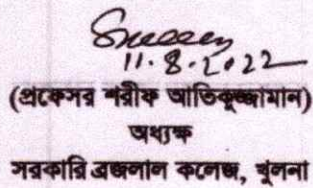 11.8.2022
(প্রফেসর শরীফ আতিকুজ্জামান)
অধ্যক্ষ
সরকারি ব্রজলাল কলেজ, খুলনা